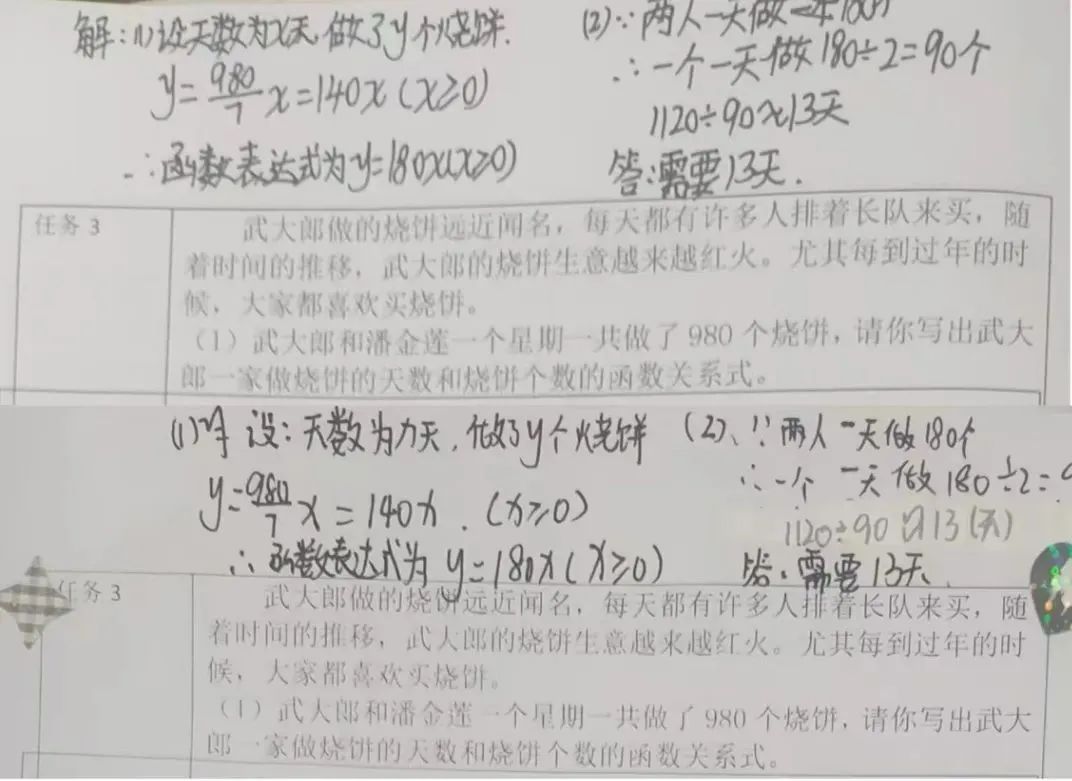 解:(1)设天数为x天,做了y个烧饼.
y=980/7 x=140x(x≥0)
∴函数表达式为y=180x(x≥0)
(2)∵两人一天做
∴一个一天做180÷2=90个
1120÷90≈13天
答:需要13天.
任务3
武大郎做的烧饼远近闻名,每天都有许多人排着长队来买,随
着时间的推移,武大郎的烧饼生意越来越红火。尤其每到过年的时
候,大家都喜欢买烧饼。
(1)武大郎和潘金莲一个星期一共做了980个烧饼,请你写出武大
郎一家做烧饼的天数和烧饼个数的函数关系式。
(1) 设:天数为x天,做了y个烧饼
y=980/7 x=140x.(x≥0)
∴函数表达式为y=180x(x≥0)
(2)、∵两人一天做180个
∴一个一天做180÷2=
1120÷90≈13(天)
答:需要13天.
任务3
武大郎做的烧饼远近闻名,每天都有许多人排着长队来买,随
着时间的推移,武大郎的烧饼生意越来越红火。尤其每到过年的时
候,大家都喜欢买烧饼。
(1)武大郎和潘金莲一个星期一共做了980个烧饼,请你写出武大
郎一家做烧饼的天数和烧饼个数的函数关系式。